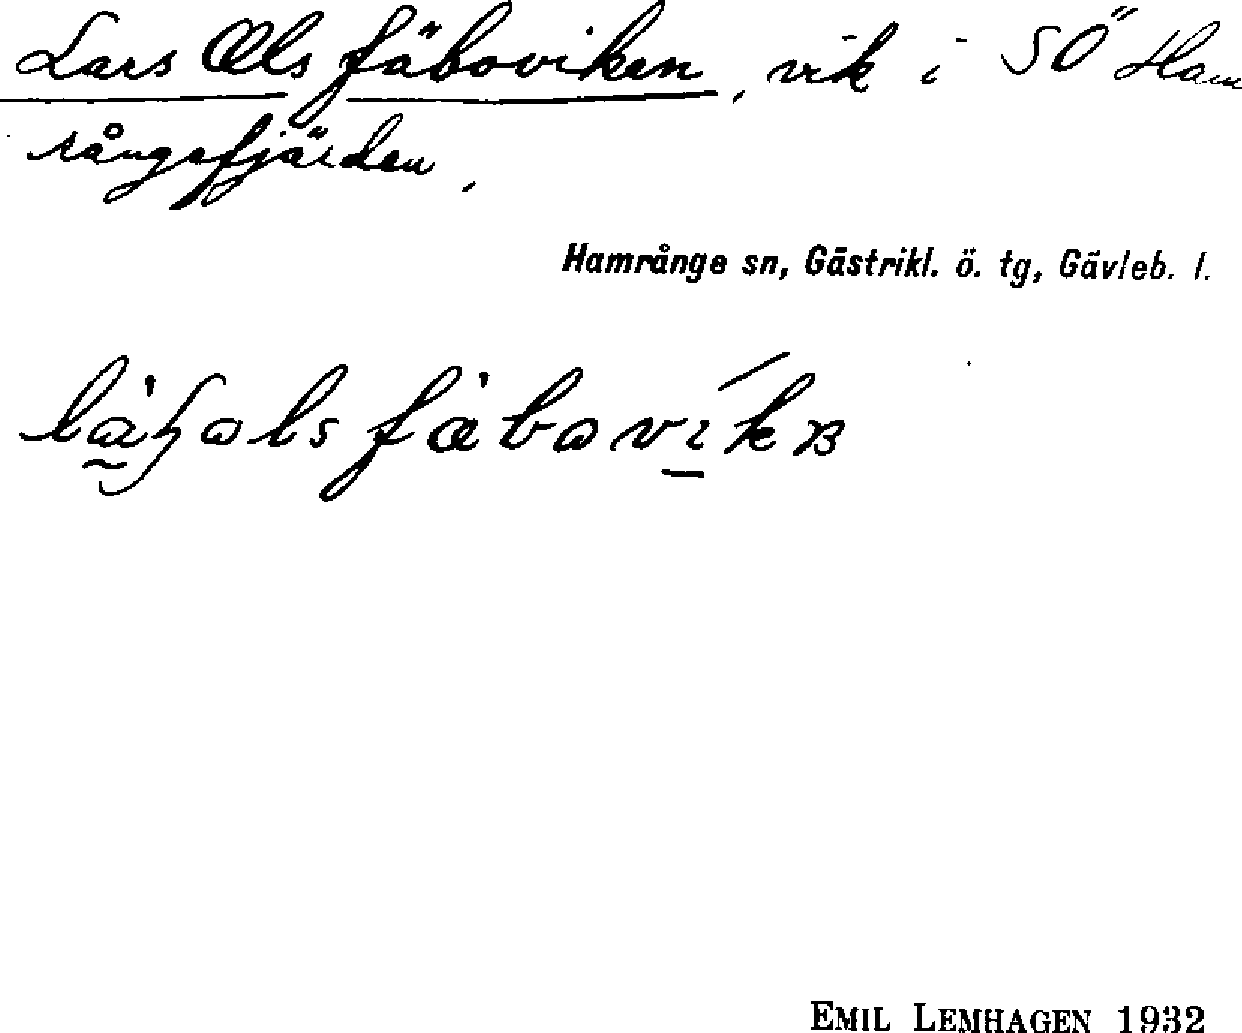 Lars Ols fäboviken, vik i SÖ Ham
rångefjärden.
Hamrånge sn, Gästrikl. ö. tg, Gävleb. l.
EMIL LEMHAGEN 1932